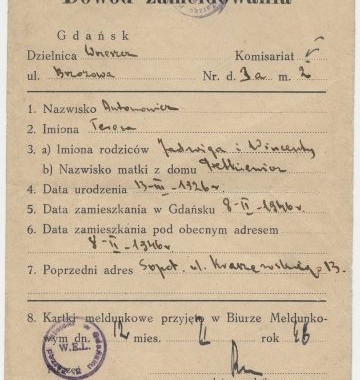 Dowód zameldowania
Gdańsk
Dzielnica Wrzeszcz Komisariat V
ul. Brzozowa Nr. d. 3a m. 2
1. Nazwisko Antonowicz
2. Imiona Teresa
3. a) Imiona rodziców Jadwiga i Wincenty
b) Nazwisko matki z domu
4. Data urodzenia 13-III-1926r
5. Data zamieszkania w Gdańsku 8-II-1946r
6. Data zamieszkania pod obecnym adresem
8-II-1946r
7. Poprzedni adres Sopot, ul. Kraszewskiego 13.
8. Kartki meldunkowe przyjęte w Biurze Meldunko-
wym dn. 12 mies. 2 rok 46
W.E.L.